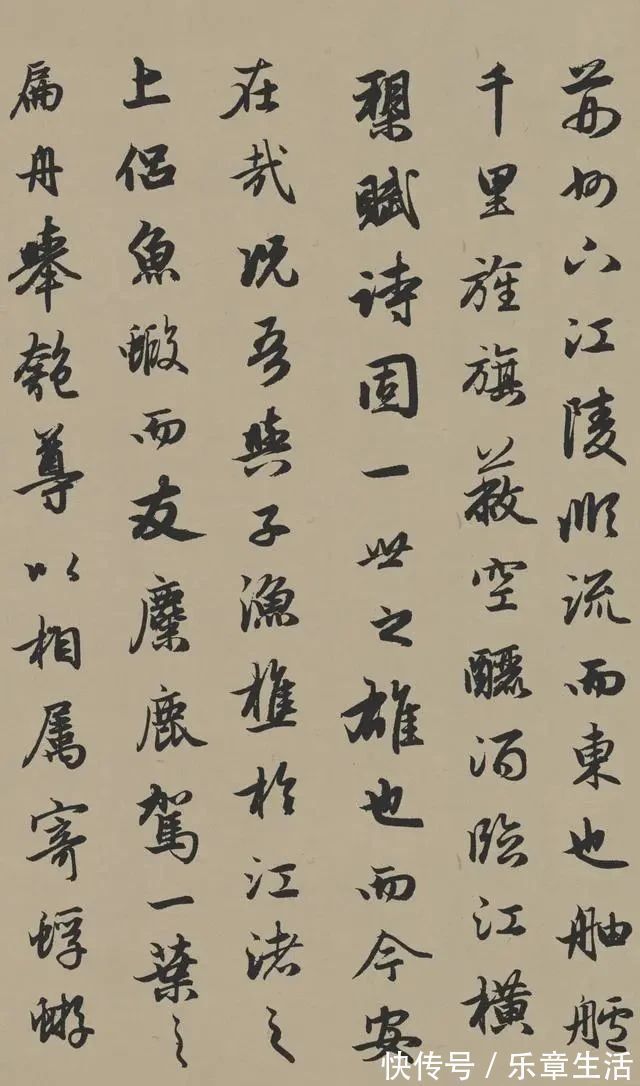 荊州下江陵順流而東也舳艫
千里旌旗蔽空釃酒臨江橫
槊賦詩固一世之雄也而今安
在哉況吾與子漁樵於江渚之
上侶魚蝦而友麋鹿駕一葉之
扁舟舉匏尊以相屬寄蜉蝣
快传号／乐章生活